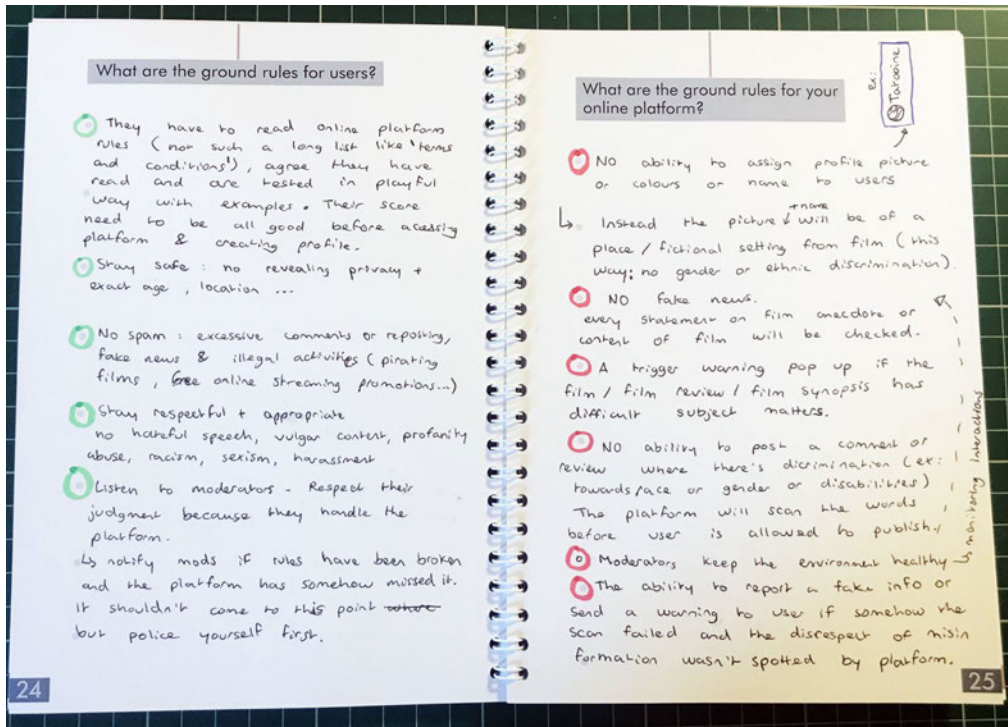 What are the ground rules for users?
They have to read online platform
rules (not such a long list like 'terms
and conditions'), agree they have
read and are tested in playful
way with examples. Their score
need to be all good before acessing
platform & creating profile.
Stay safe: no revealing privacy +
exact age, location ...
No spam: excessive comments or reposting,
fake news & illegal activities (pirating
films, free online streaming promotions...)
Stay respectful + appropriate
no hateful speech, vulgar content, profanity
abuse, racism, sexism, harassment
Listen to moderators - Respect their
judgment because they handle the
platform.
↳ notify mods if rules have been broken
and the platform has somehow missed it.
It shouldn't come to this point where
but police yourself first.
24
What are the ground rules for your
online platform?
Ex:
Tatooine
NO ability to assign profile picture
or colours or name to users
+ name
↳ Instead the picture will be of a
place / fictional setting from film (this
way: no gender or ethnic discrimination).
NO fake news.
every statement on film anecdote or
content of film will be checked.
A trigger warning pop up if the
film / film review / film synopsis has
difficult subject matters.
NO ability to post a comment or
review where there's dicrimination (ex:
towards race or gender or disabilities)
The platform will scan the words
before user is allowed to publish.
Moderators keep the environment healthy
↳ monitoring interactions
The ability to report a fake info or
send a warning to user if somehow the
scan failed and the disrespect of misin
formation wasn't spotted by platform.
25